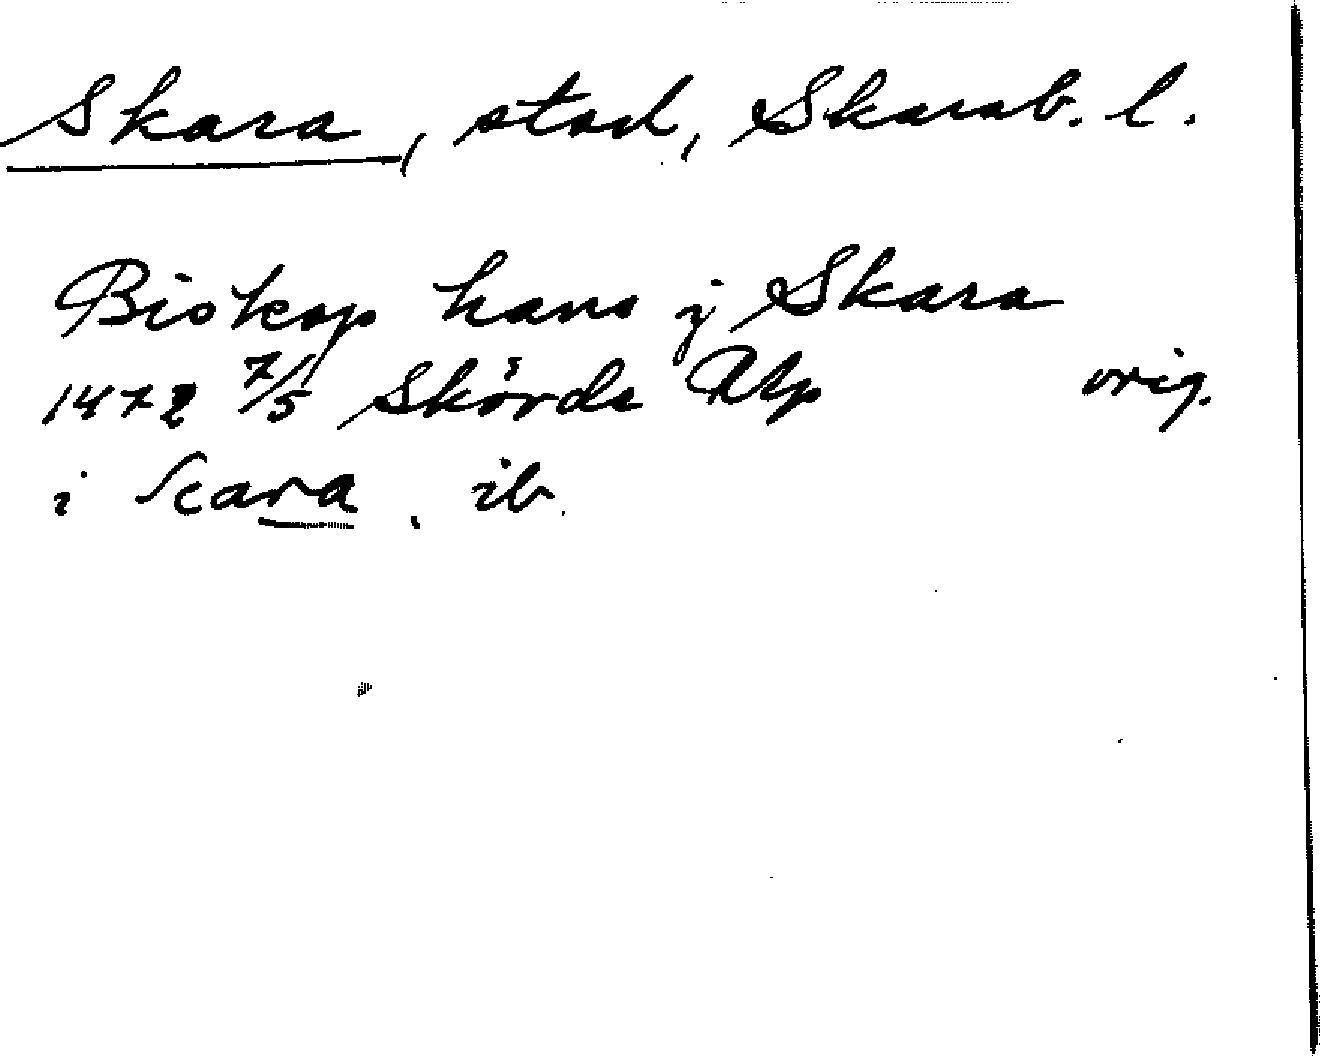 Skara, stad, Skarab. l.
Biskop hans j Skara
1472 7/5 Skörde RAp orig.
i Scara. ib.